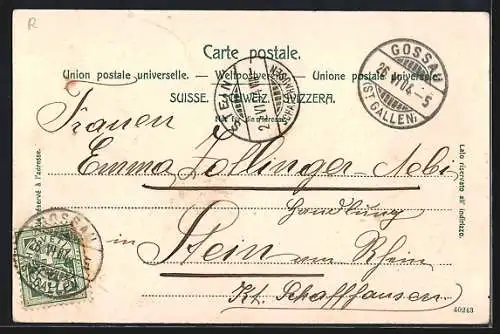 R
Carte postale.
Union postale universelle. — Weltpostverein. — Unione postale universale.
SUISSE. SCHWEIZ. SVIZZERA.
Nur für die Adresse.
GOSSAU
26.VI.04.-5
(ST GALLEN)
STEIN
SCHAFFHAUSEN
Frauen
Emma Zollinger-Aebi
Handlung
in Stein am Rhein
Kt. Schaffhausen
réservé à l'adresse.
Lato riservato all' indirizzo.
GOSSAU
(ST. GALLEN)
40243